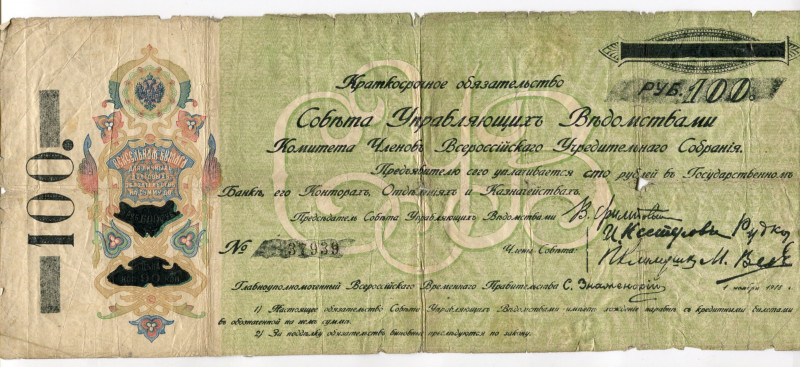 100.
ВЕКСЕЛЬНАЯ БУМАГА
РУБ. 100.
Краткосрочное обязательство
Совѣта Управляющихъ Вѣдомствами
Комитета Членовъ Всероссійскаго Учредительнаго Собранія.
Предъявителю сего уплачивается сто рублей въ Государственномъ
Банкѣ, его Конторахъ, Отдѣленіяхъ и Казначействахъ.
Предсѣдатель Совѣта Управляющихъ Вѣдомствами
№ 31939
Члены Совѣта:
Главноуполномоченный Всероссійскаго Временнаго Правительства С. Знаменскій
ноября 1918 г.
1) Настоящее обязательство Совѣта Управляющихъ Вѣдомствами имѣетъ хожденіе наравнѣ съ кредитными билетами
въ обозначенной на немъ суммѣ.
2) За поддѣлку обязательствъ виновные преслѣдуются по закону.